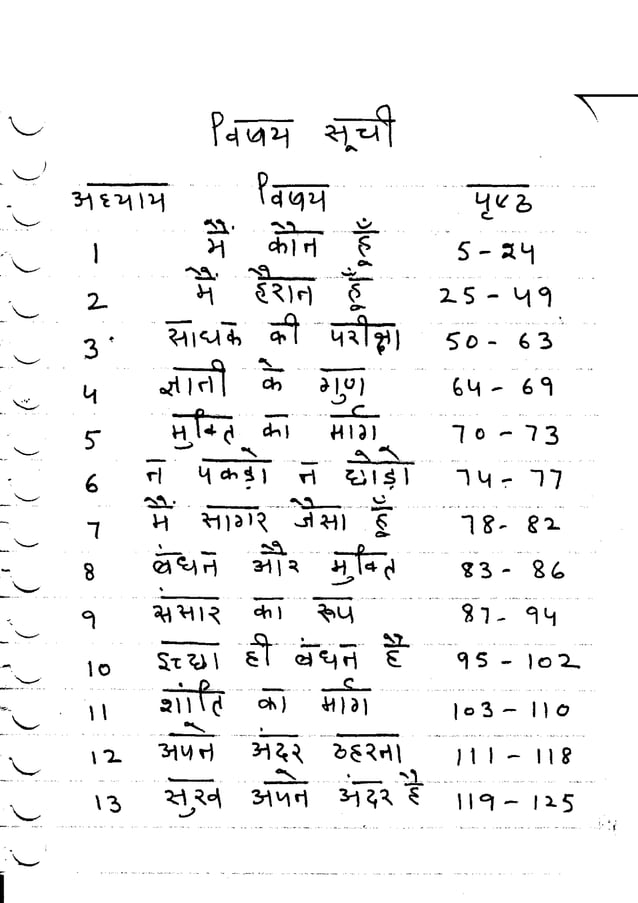 विषय सूची
अध्याय विषय पृष्ठ
1 मैं कौन हूँ 5-24
2 मैं हैरान हूँ 25-49
3 साधक की परीक्षा 50-63
4 ज्ञानी के गुण 64-69
5 मुक्ति का मार्ग 70-73
6 न पकड़ो न छोड़ो 74-77
7 मैं सागर जैसा हूँ 78-82
8 बंधन और मुक्ति 83-86
9 संसार का रूप 87-94
10 इच्छा ही बंधन है 95-102
11 शांति का मार्ग 103-110
12 अपने अंदर ठहरना 111-118
13 सुख अपने अंदर है 119-125